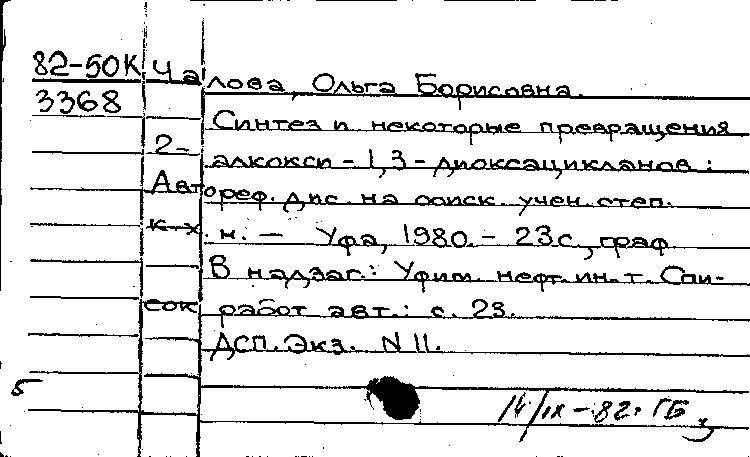 82-50К Чалова, Ольга Борисовна.
3368
Синтез и некоторые превращения
2-алкокси-1,3-диоксацикланов:
Автореф. дис. на соиск. учен. степ.
к.х.н. — Уфа, 1980. - 23с., граф.
В надзаг.: Уфим. нефт. ин.-т. Спи-
сок работ авт.: с. 23.
ДСП. Экз. N 11.
5
14/IX-82. ГБ